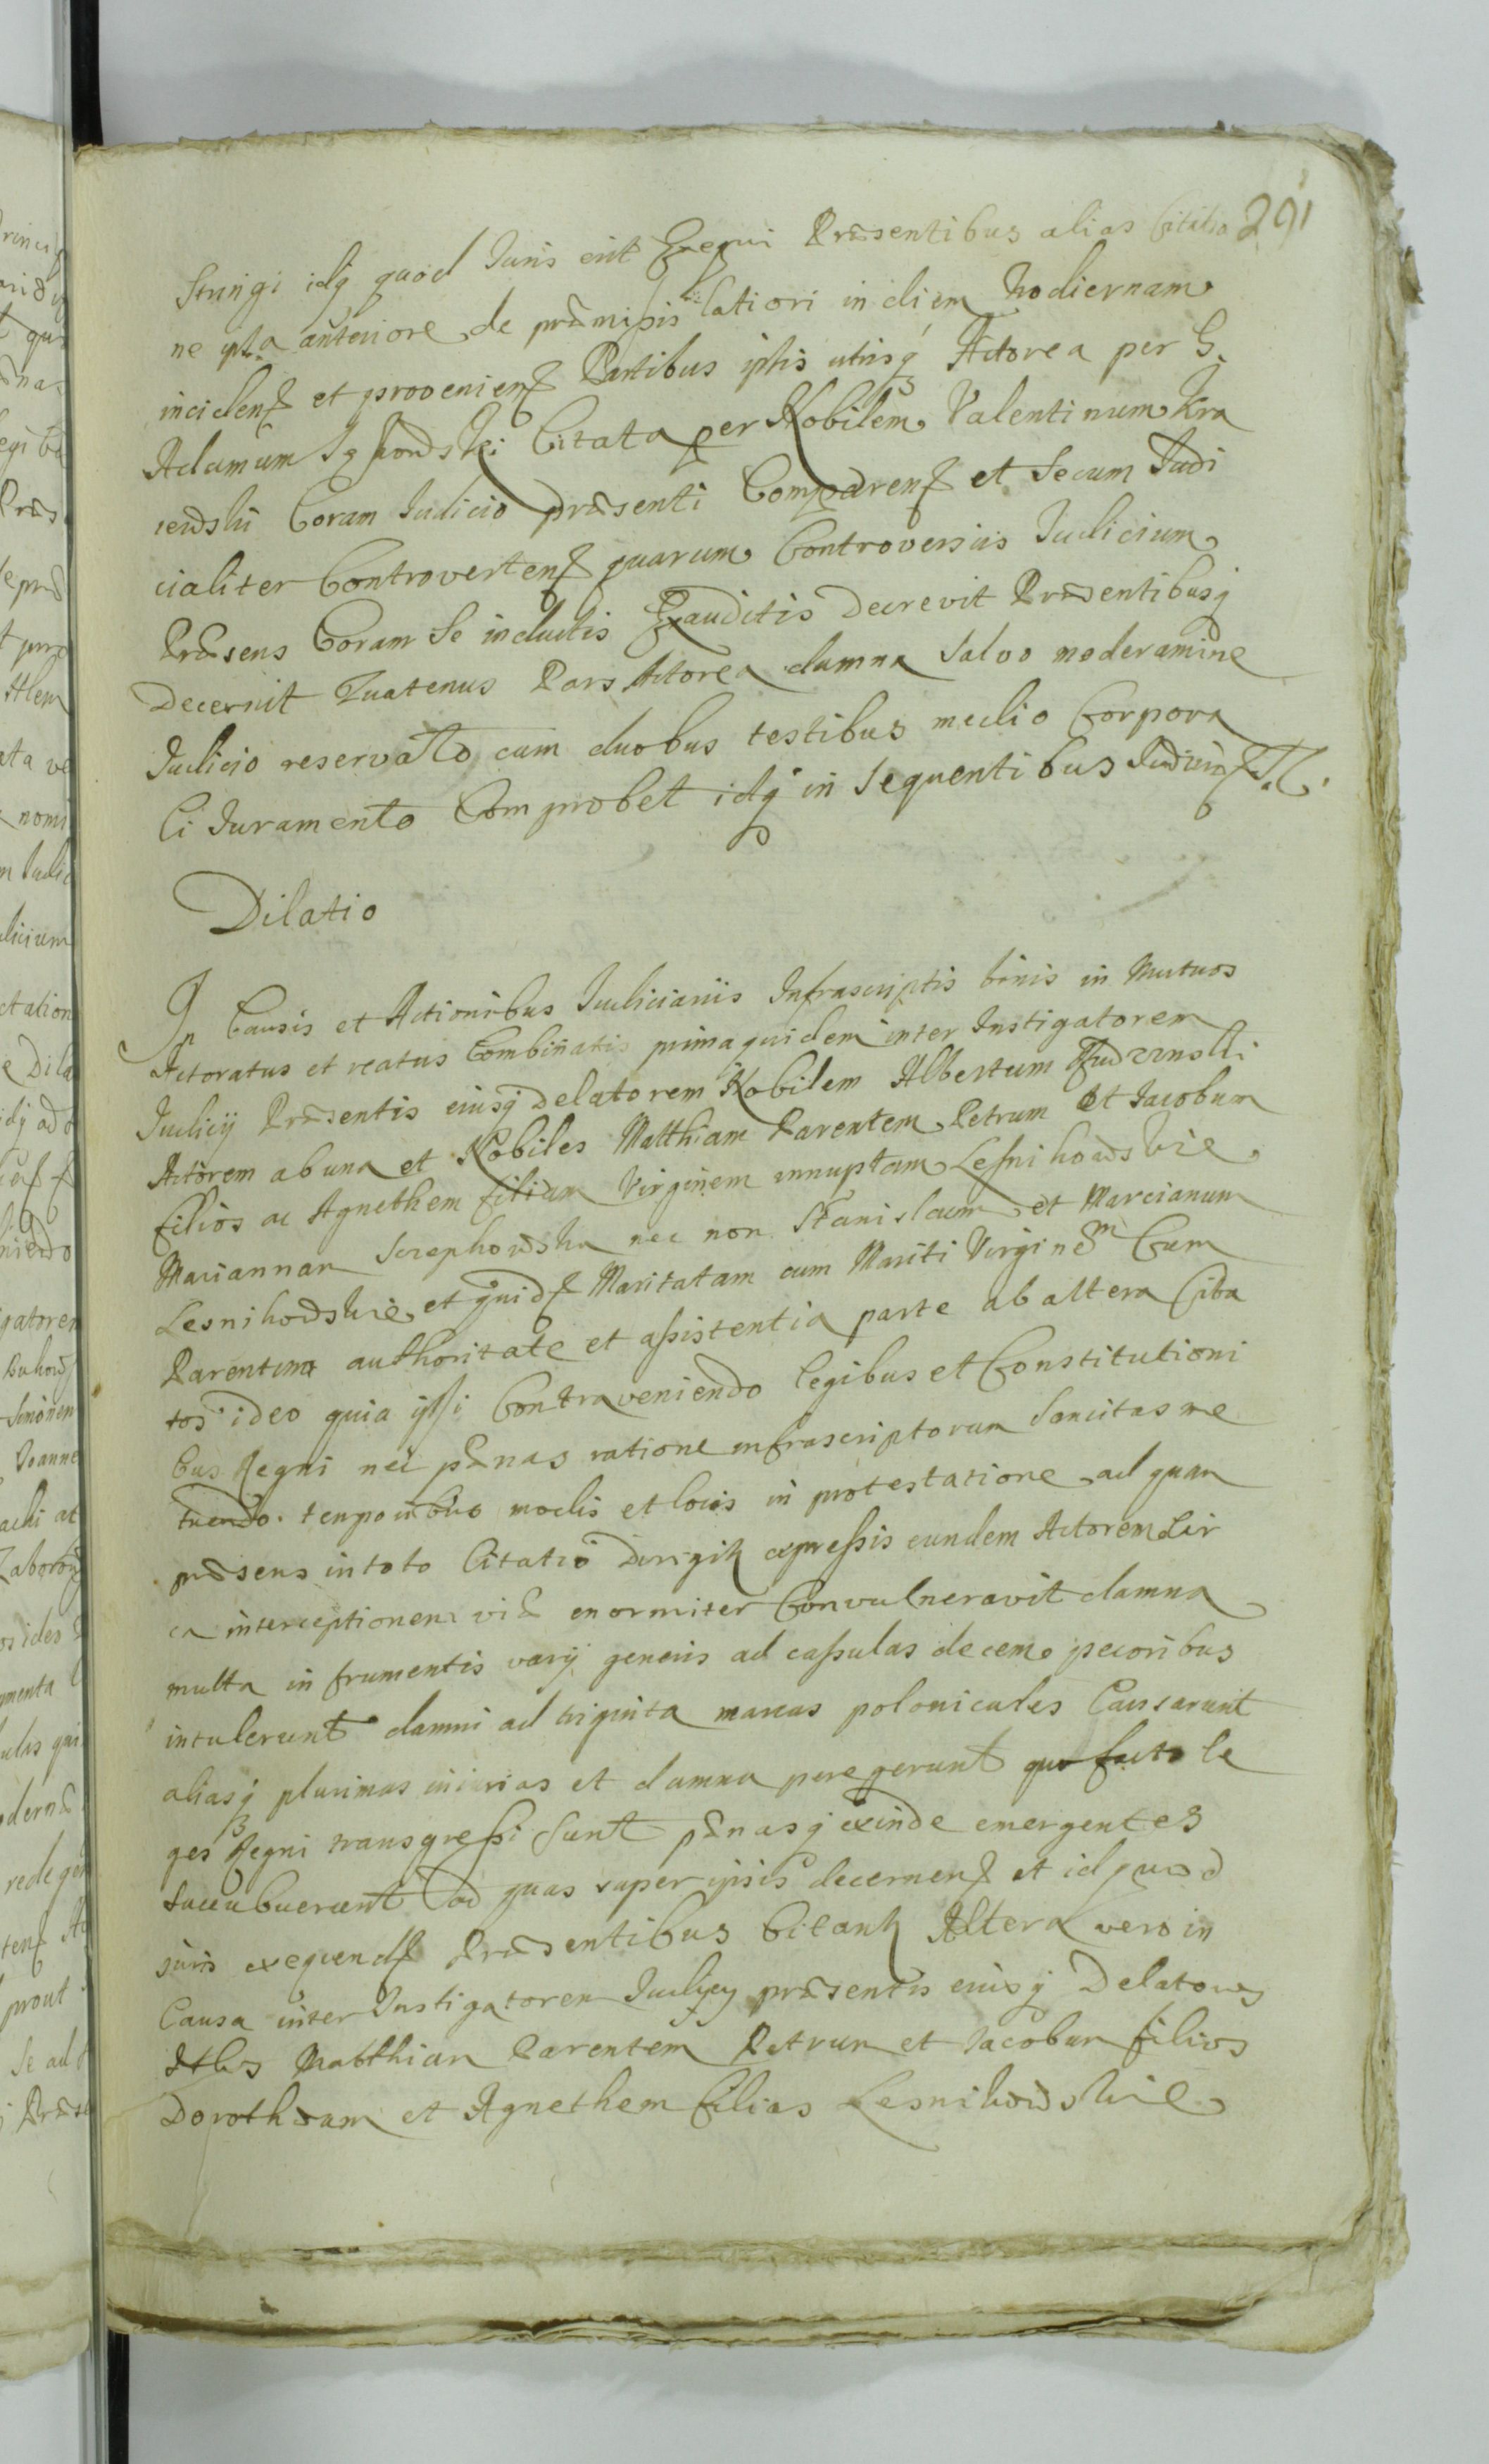 291
Stringi idq quod Juris erit Exequi Præsentibus alias Citatio
ne ipsa anteriore de præmissis latiori in diem hodiernam
incidenꝭ et provenienꝭ Partibus iphis utrisq Actorea per G.
Adamum Citata per Nobilem Valentinum Kra
iewski Coram Judicio præsenti Comparenꝭ et Secum Judi
cialiter Controvertenꝭ quarum Controversiis Judicium
Præsens Coram Se inductis Exauditis Decrevit Præsentibusq
Decernit Quatenus Pars Actorea damna Salvo moderamine
Judicio reservato cum duobus testibus medio Corpora
li Juramento Comprobet idq in Sequentibus
Dilatio
In Causis et Actionibus Judiciariis Infrascriptis binis in Mutuos
Actoratus et reatus Combinatis prima quidem inter Instigatorem
Judicij Præsentis eiusq delatorem Nobilem Albertum
Actorem ab una et Nobiles Matthiam Parentem Petrum et Jacobum
filios ac Agnethem filiam Virginem innuptam Lesnikowskie
Mariannam nec non Stanislaum et Marcianum
Lesnikowskie et quidꝭ Maritatam cum Mariti Virginem Cum
Parentum authoritate et assistentia parte ab altera Cita
tos ideo quia ipsi Contraveniendo legibus et Constitutioni
bus Regni nec pænas ratione infrascriptorum Sancitas me
tuendo temporibus modis et locis in protestatione ad quam
præsens in toto Citatio Dirigitur expressis eundem Actorem Cir
ca interceptionem viæ enormiter Convulneravit damna
multa in frumentis varij generis ad cassulas decem pecoribus
intulerunt damni ad triginta marcas polonicales Causarunt
aliasq plurimas iniurias et damna peregerunt quo facto le
ges Regni transgressi Sunt pænasq exinde emergentes
Succubuerunt ad quas super ipsis decernenꝭ et id quod
juris exequendꝭ Præsentibus Citantur Altera vero in
Causa inter Instigatorem Judicij præsentis eiusq Delatores
Nbles Matthiam Parentem Petrum et Jacobum filios
Dorotheam et Agnethem filias Lesnikowskie